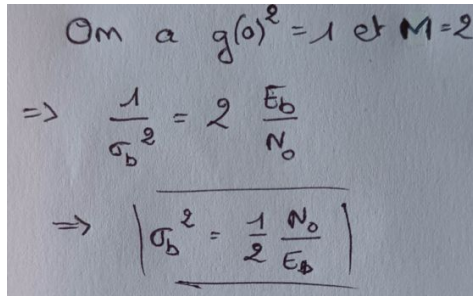 On a g(0)² = 1 et M = 2
=> 1/σb² = 2 Eb/N0
=> σb² = 1/2 N0/Eb